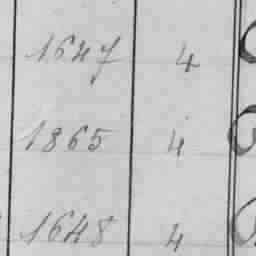 1647 4
1865 4
1648 4